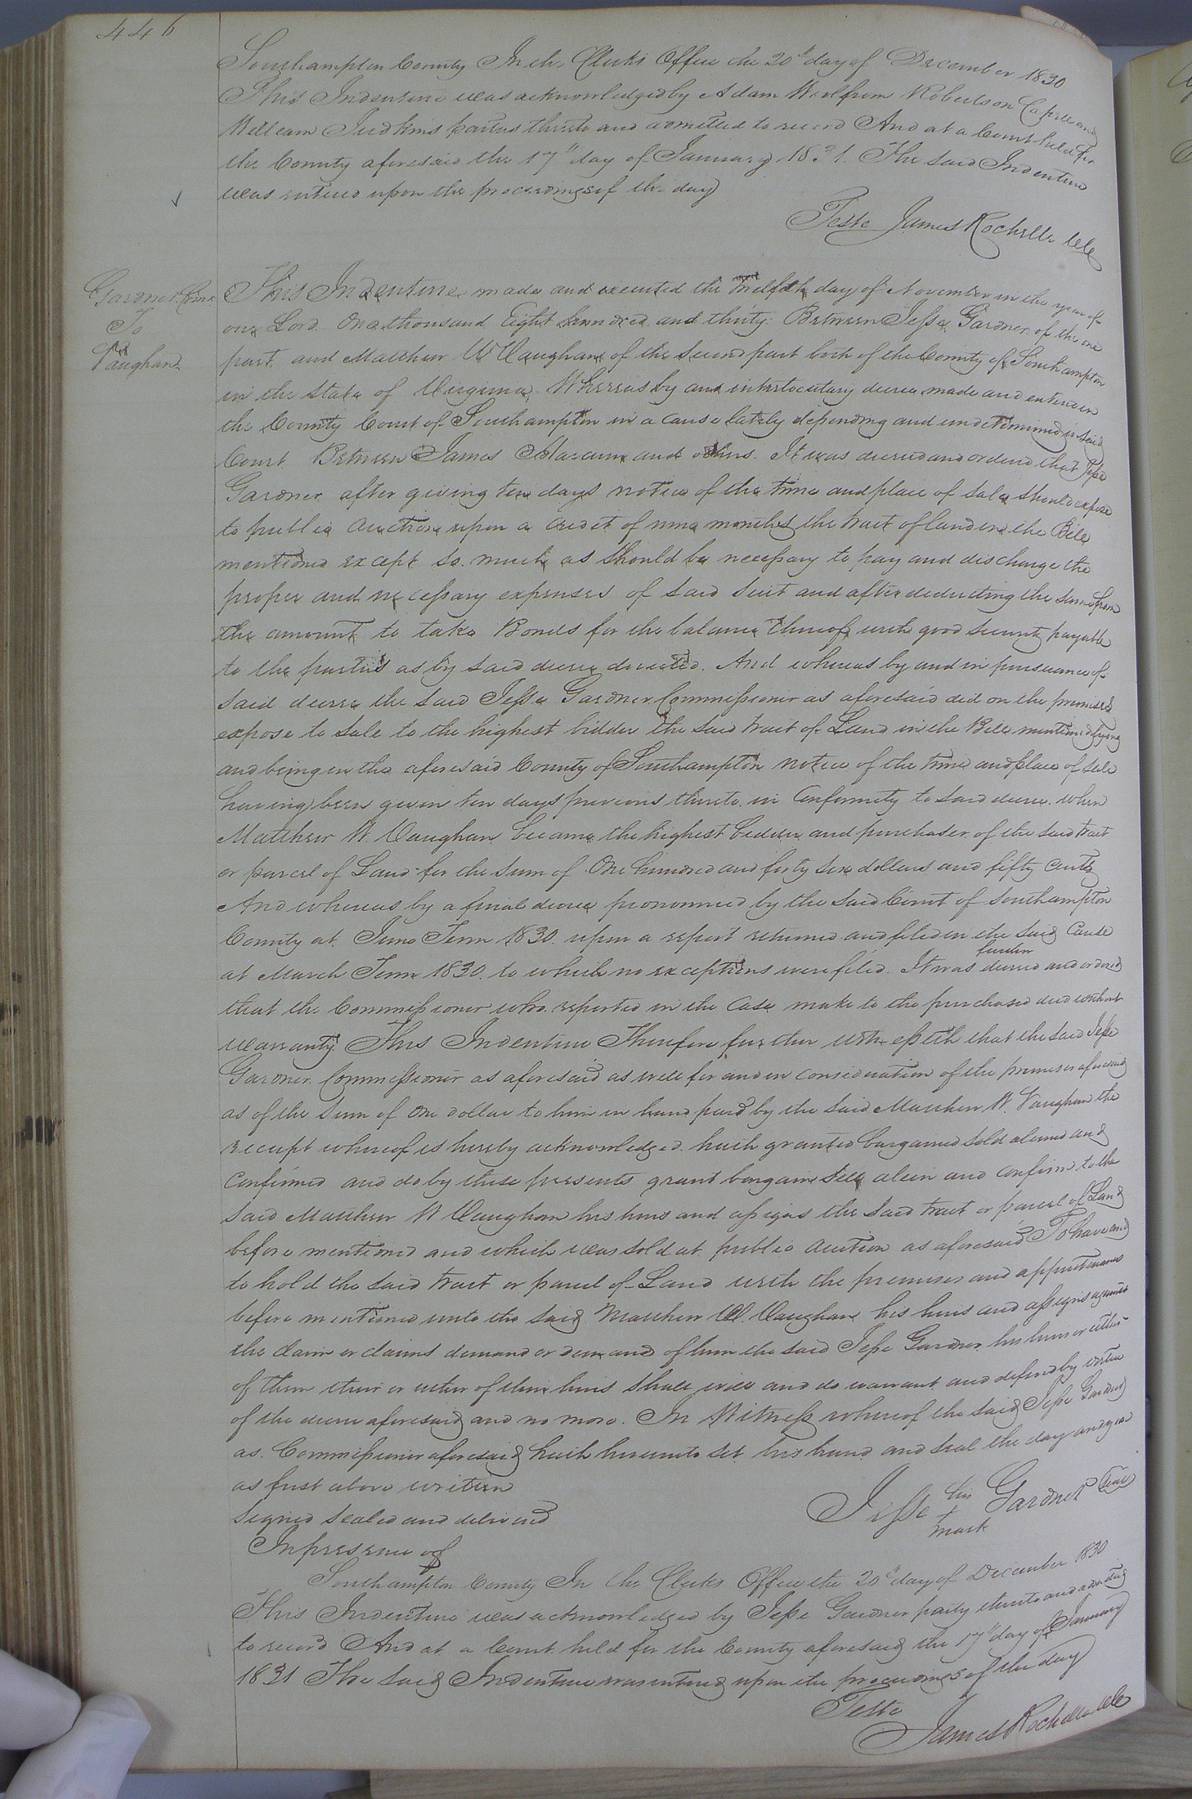 446
Southampton County In the Clerks Office the 20th day of December 1830
This Indenture was acknowledged by Adam Robertson
William Judkins parties thereto and admitted to record And at a Court held for
the County aforesaid the 17th day of January 1831. The said Indenture
was entered upon the proceedings of the day
Teste James Rochelle Clk
Gardner Comr
To
Vaughan
This Indenture made and executed the twelfth day of November in the year of
our Lord One thousand Eight hundred and thirty Between Jesse Gardner of the one
part and Matthew W Vaughan of the second part both of the County of Southampton
in the State of Virginia. Whereas by an interlocutary decree made and entered in
the County Court of Southampton in a cause lately depending and undetermined in said
Court Between James and others. It was decreed and ordered that Jesse
Gardner after giving ten days notice of the time and place of sale should expose
to public auction upon a credit of nine months the tract of land in the Bill
mentioned except so much as should be necessary to pay and discharge the
proper and necessary expenses of said suit and after deducting the same from
the amount to take Bonds for the balance thereof with good security payable
to the parties as by said decree directed. And whereas by and in pursuance of
said decree the said Jesse Gardner Commissioner as aforesaid did on the premises
expose to sale to the highest bidder the said tract of Land in the Bill mentioned lying
and being in the aforesaid County of Southampton notice of the time and place of sale
having been given ten days previous thereto in Conformity to said decree. when
Matthew W. Vaughan became the highest bidder and purchaser of the said tract
or parcel of Land for the sum of One hundred and forty dollars and fifty cents
And whereas by a final decree pronounced by the said Court of Southampton
County at June Term 1830. upon a report returned and filed in the said Cause
at March Term 1830. to which no exceptions were filed. It was further decreed and ordered
that the Commissioner who reported in the Case make to the purchaser deed without
warranty This Indenture Therefore further witnesseth that the said Jesse
Gardner Commissioner as aforesaid as well for and in consideration of the premises aforesaid
as of the sum of one dollar to him in hand paid by the said Matthew W. Vaughan the
receipt whereof is hereby acknowledged hath granted bargained sold aliened and
Confirmed and do by these presents grant bargain sell alien and confirm to the
said Matthew W Vaughan his heirs and assigns the said tract or parcel of Land
before mentioned and which was sold at public auction as aforesaid To have and
to hold the said tract or parcel of Land with the premises and appurtenances
before mentioned unto the said Matthew W. Vaughan his heirs and assigns against
the claim or claims demand or demands of him the said Jesse Gardner his heirs or either
of them their or either of their heirs shall will and do warrant and defend by virtue
of the decree aforesaid and no more. In Witness whereof the said Jesse Gardner
as Commissioner aforesaid hath hereunto set his hand and seal the day and year
as first above written
Signed Sealed and delivered
In presence of
Jesse his + mark Gardner Seal
Southampton County In the Clerks Office the 20th day of December 1830
This Indenture was acknowledged by Jesse Gardner party thereto and admitted
to record And at a Court held for the County aforesaid the 17th day of January
1831 The said Indenture was entered upon the proceedings of the day
Teste
James Rochelle Clk